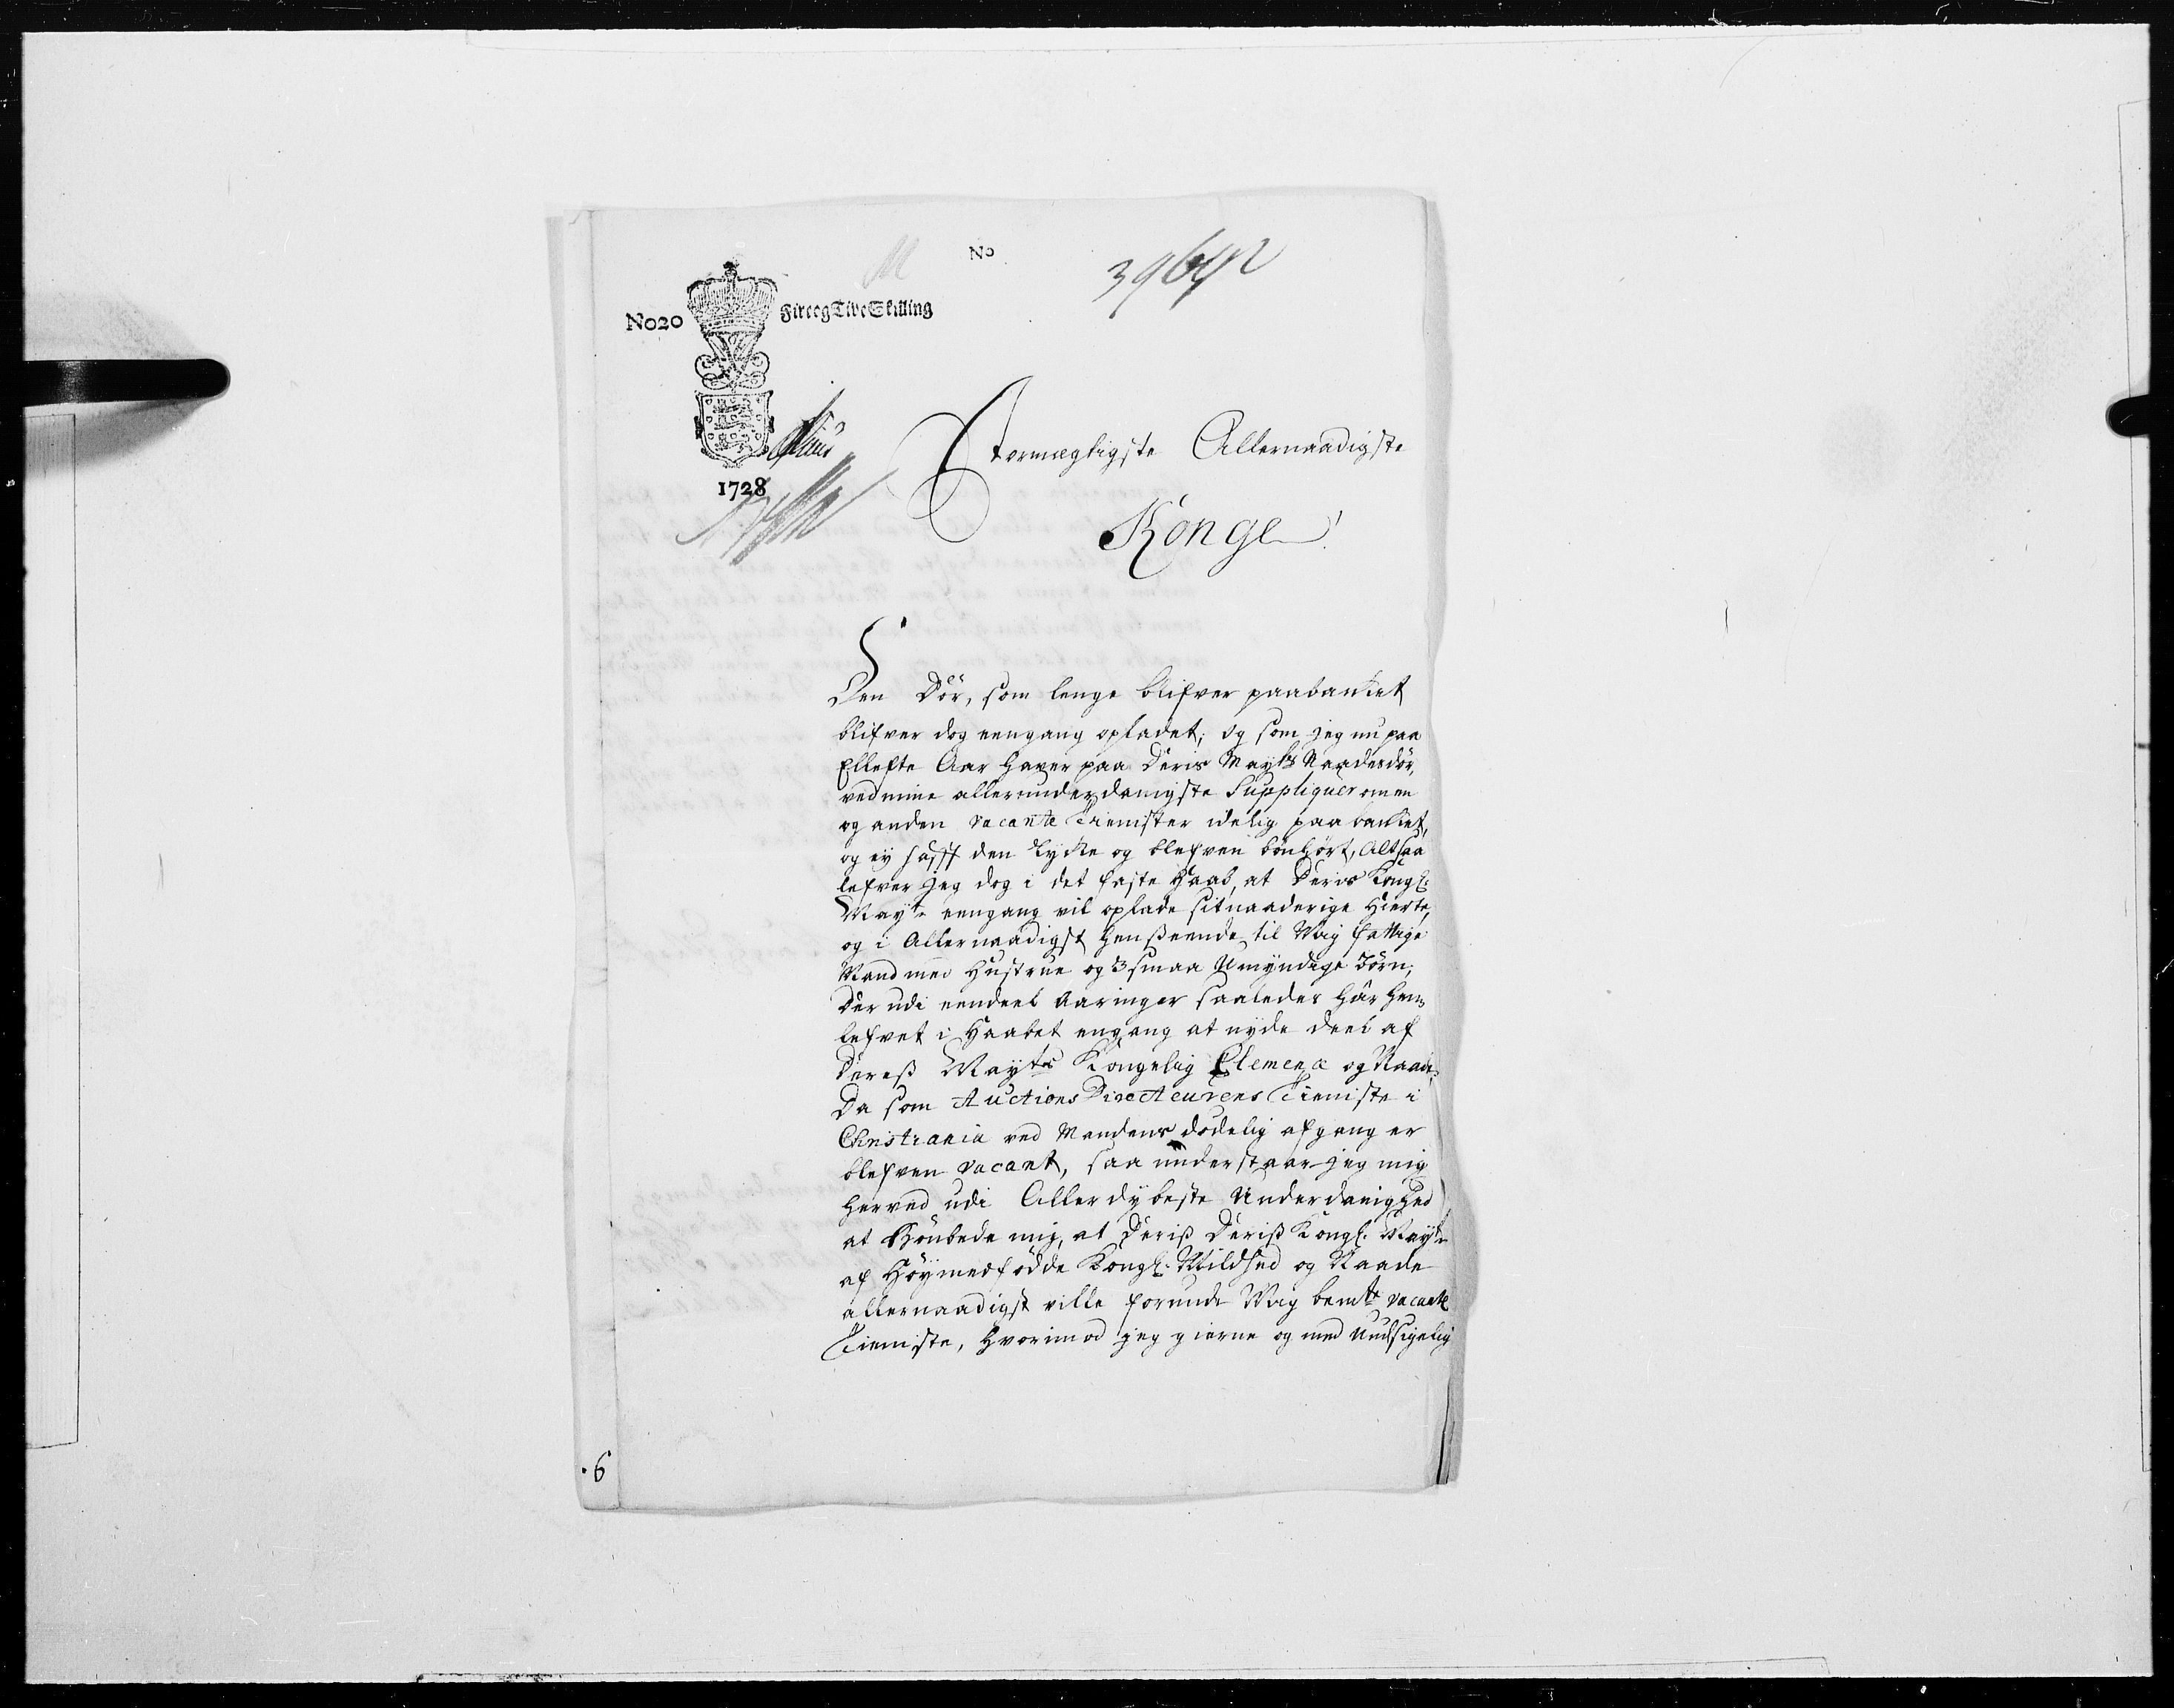 No
No20
Fire og Tive Skilling
1728
Stormægtigste Allernaadigste
Konge!
Den Dör, som lenge blifver paabanket
blifver dog eengang opladet; og som jeg nu paa
Ellefte Aar haver paa Deris Mayts Naadesdör,
ved mine allerunderdanigste Suppliquer om en
og anden vacante Tienister idelig paa banket,
og ey hafft den Lycke og blefven bönhört, Altsaa
lefver jeg dog i det faste Haab, at Deris Kongl:
Mayts eengang vil oplade sit naaderige Hierte,
og i Allernaadigst henseende til Mig fattige
Mand med Hustrue og 3 smaa Umyndige Börn,
Der udi eendeel Aaringer saaledes här hen
lefvet i Haabet engang at nyde deel af
Deress Mayts Kongelig Clemence og Naade,
Da som Auctions Directeurens Tieniste i
Christiania ved Mandens dödelig afgang er
blefven vacant, saa understaar jeg mig
herved udi Allerdybeste Underdanighed
at bönbede mig, at Deriss Deriss Kongl. Mayts
af Höymedfödde Kongl: Mildhed og Naade
allernaadigst ville forunde Mig bemte vacante
Tieniste, hvorimod jeg gierne og med Uudsigelig
6